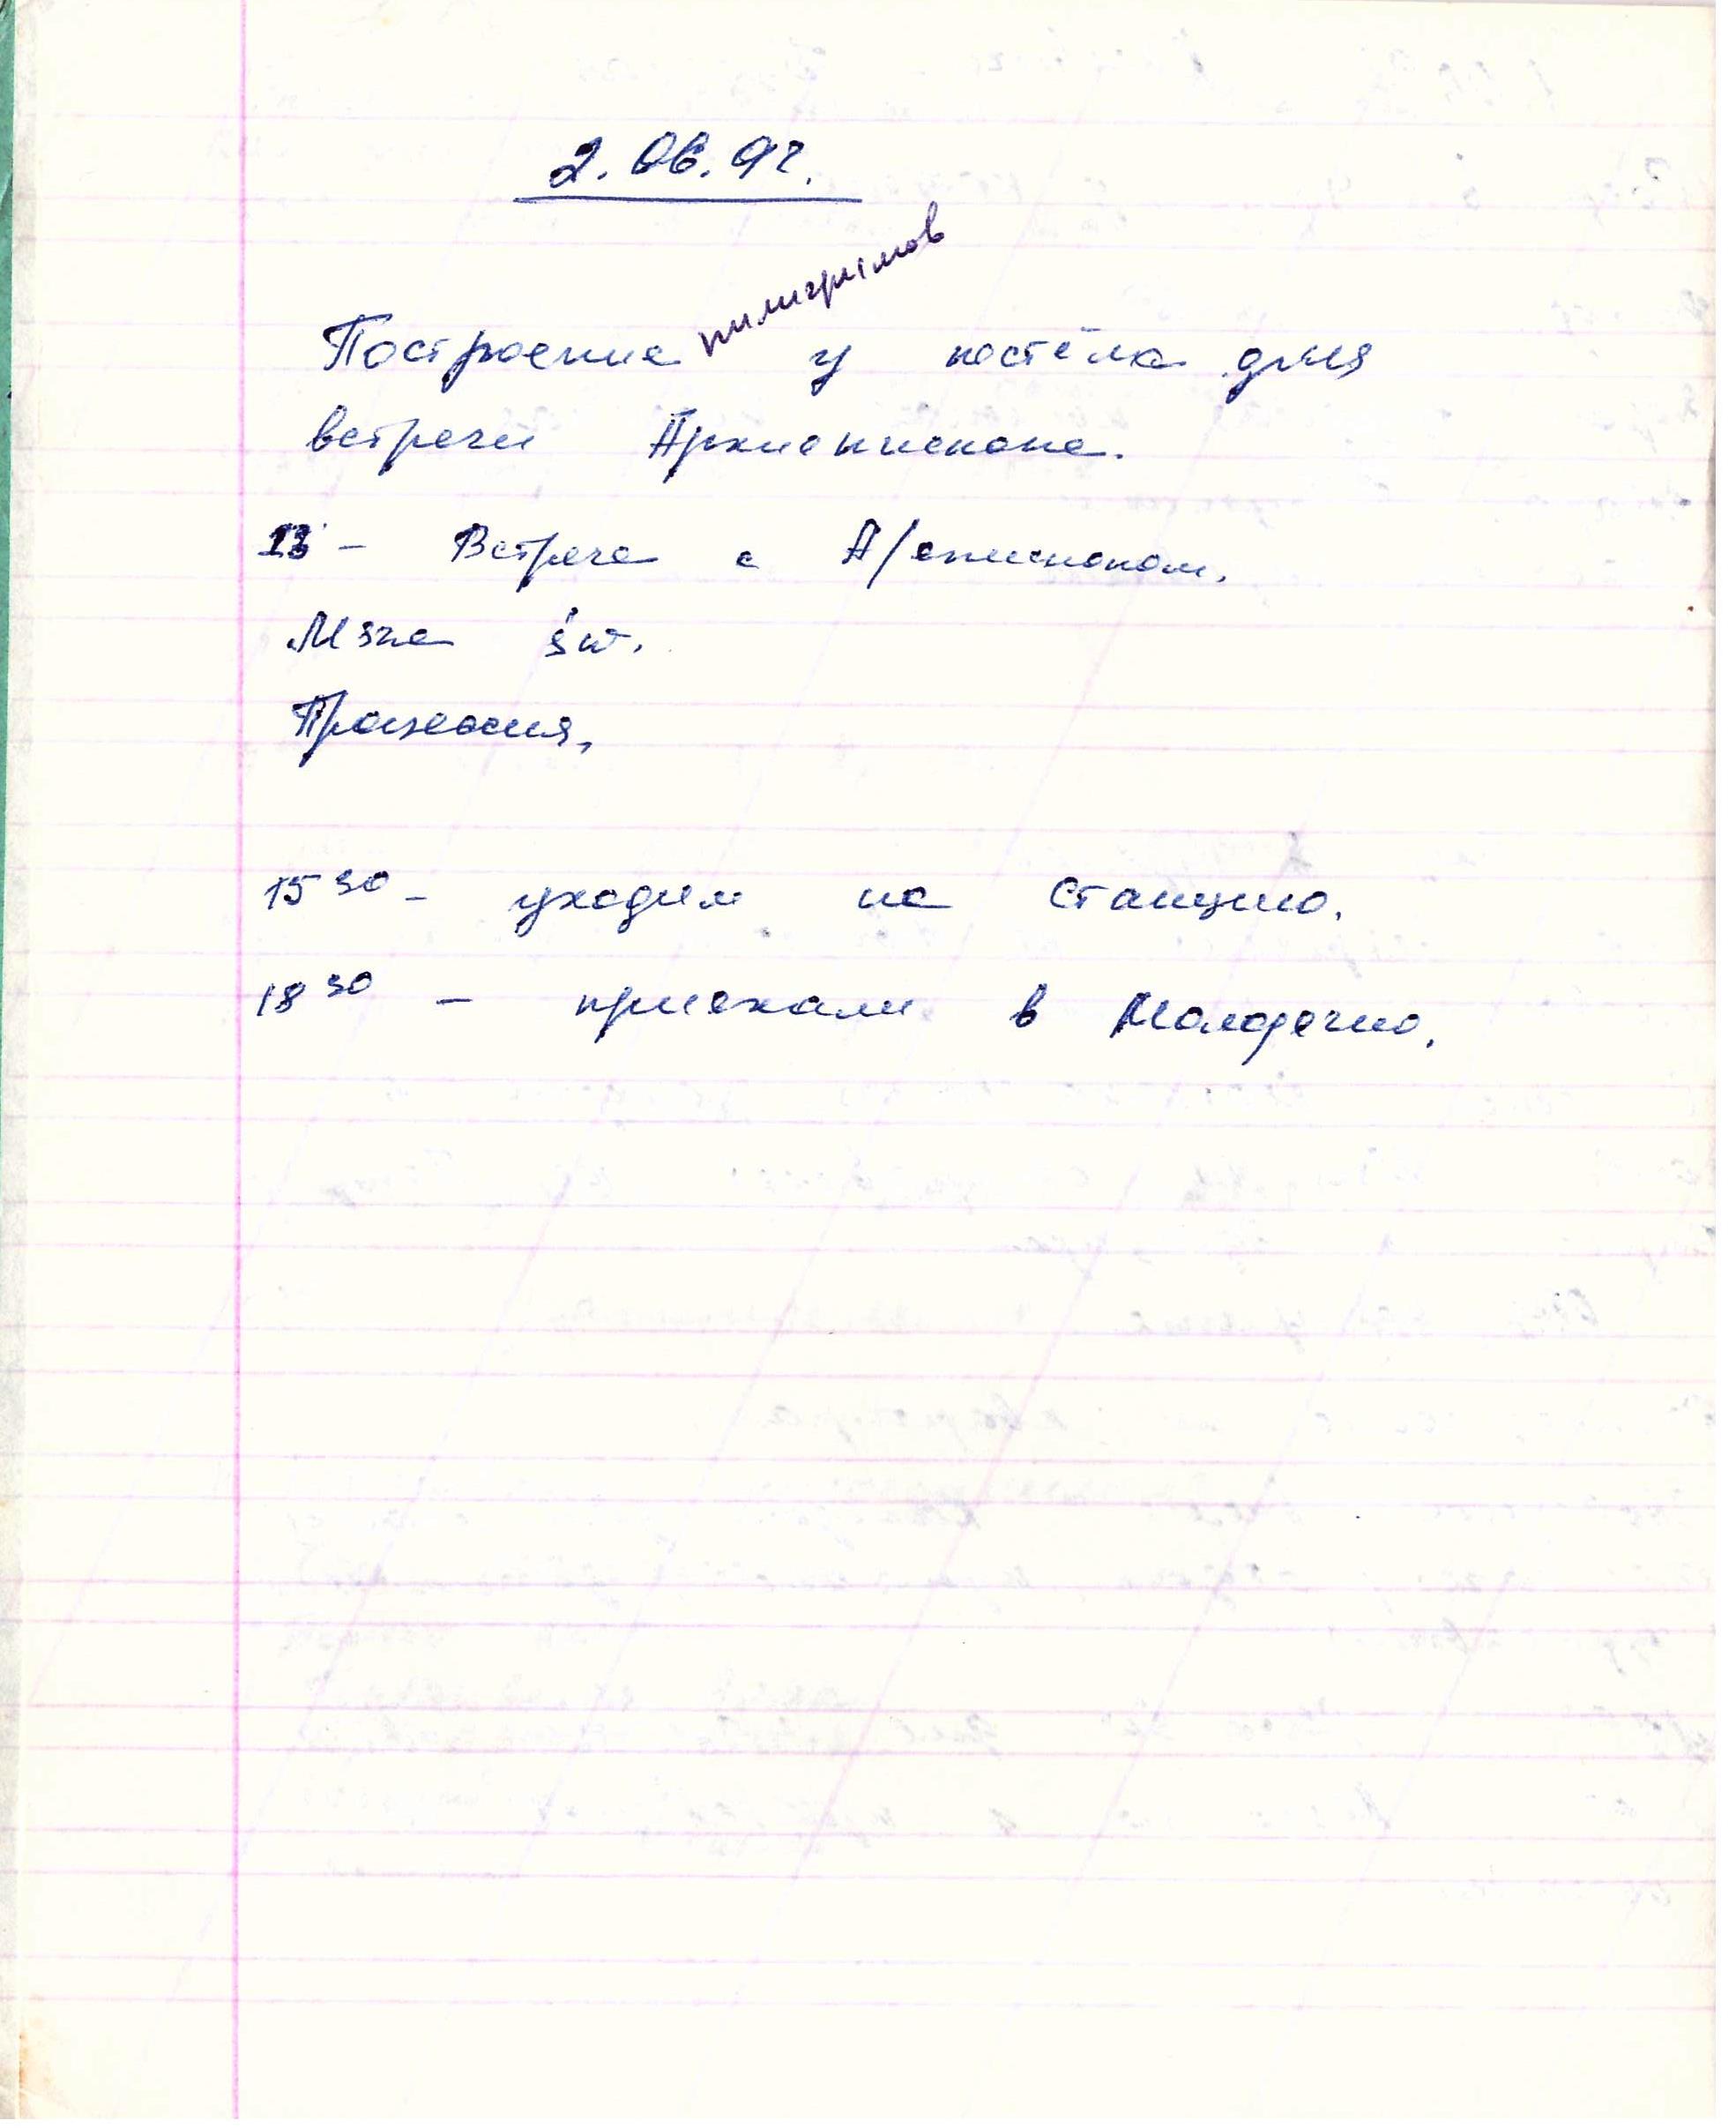 2.06.92.
Построение пилигримов у костёла для
встречи Архиепископа.
13 – Встреча с А/епископом.
Мsza św.
Процессия.
15 30 – уходим на станцию.
18 30 – приехали в Молодечно.